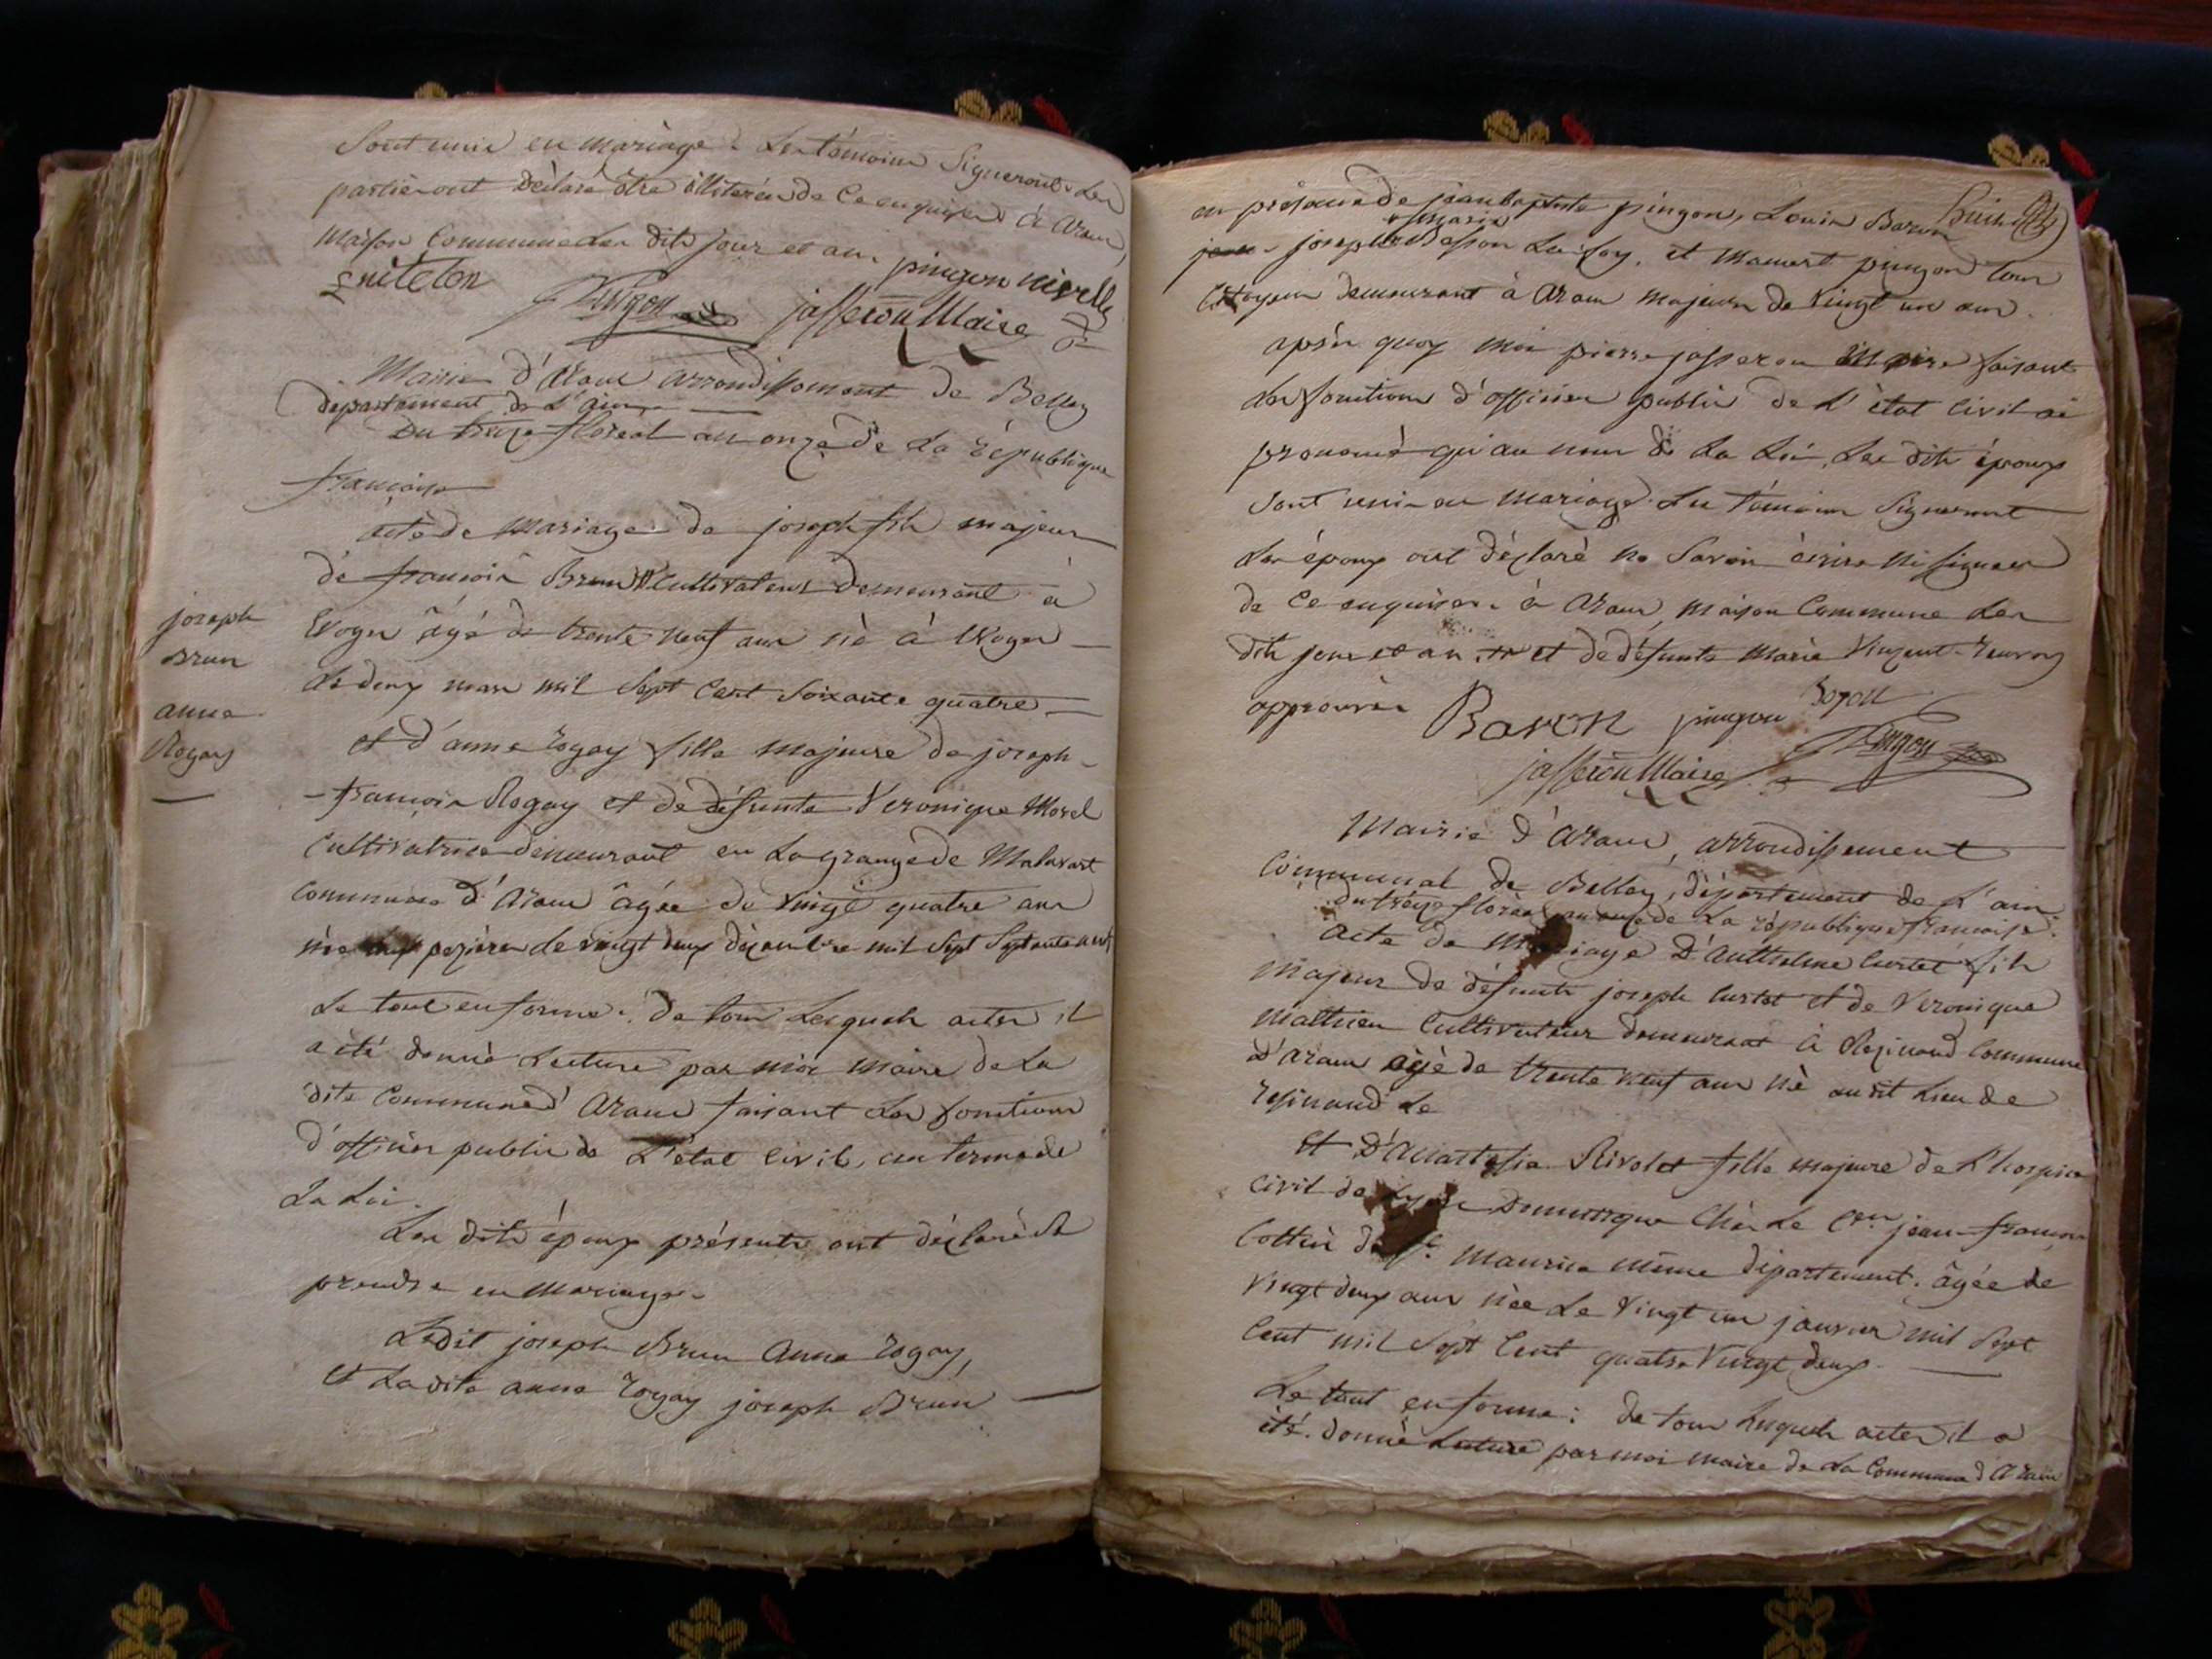 Sont unis en mariage. Les témoins Signeront. Les
parties ont Déclaré être illiterés de Ce enquises à Aran,
Maison Commune Les dits jour et an. pingon nivelle
quiteton Pingon jasseron Maire
Mairie d'Aran arrondissement de Belley
departement de L'ain.
Du treize floreal an onze de La République
françoise
acte de Mariage de joseph fils majeur
de françois Brun # Cultivateur Demeurant à
Evoges âgé de trente neuf ans né à Evoges
Le deux mars mil Sept Cent Soixante quatre
joseph
Brun
anne
Rogay
et d'anne rogay fille majeure de joseph
françois Rogay et de défunte Veronique Morel
Cultivatrice demeurant en La grange de
Commune d'Aran âgée de vingt quatre ans
née Le vingt deux décembre mil Sept Septante neuf
Le tout en forme : De tous Lesquels actes il
a été donné Lecture par moi maire de La
dite Commune d'Aran faisant Les fonctions
d'officier public de L'état Civil, au terme de
La Loi.
Les dits époux présents ont déclaré Se
prendre en Mariage.
Ledit joseph Brun Anne rogay,
et La dite anne rogay joseph Brun
en présence de jean baptiste pingon, Louis Baron
joseph marie Basson et pingon tous
Citoyens demeurant à Aran majeurs de vingt un ans.
après quoy moi pierre jasseron Maire faisant
Les fonctions d'officier public de L'état Civil ai
prononcé qu'au nom de La Loi, Les dits époux
Sont unis en mariage. Les témoins Signeront
Les époux ont déclaré ne Savoir écrire ni signer
de Ce enquises. à Aran, maison Commune Les
dits jour et an. # et de défunte Marie Vinçent
approuvés Baron pingon
jasseron Maire Pingon
Mairie d'Aran, arrondissement
Communal de Belley, département de L'ain.
Du treize floréal an onze de La république françoise.
Acte de Mariage D'Anthelme Curtet fils
Majeur de défunts joseph Curtet et de Veronique
Mathieu Cultivateur demeurant à Resinand Commune
d'Aran agé de trente neuf ans né au dit Lieu de
resinand Le
Et D'Anastasie Rivolet fille majeure de L'hospice
Civil de Lyon Domestique Chés Le Cen jean françois
Cottin de St Maurice même département. âgée de
Vingt deux ans née Le Vingt un janvier mil Sept
Cent mil Sept Cent quatre Vingt deux.
Le tout en forme : de tous Lesquels actes il a
été donné Lecture par moi maire de La Commune d'Aran